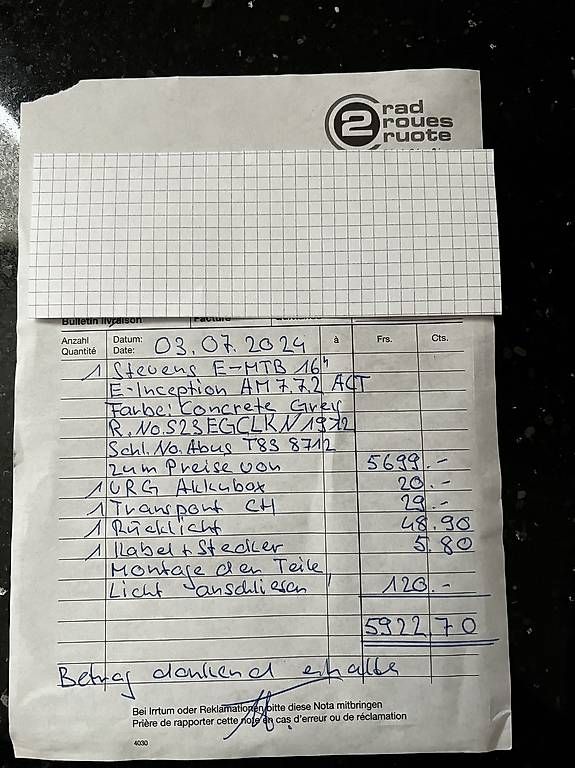 2 rad
roues
ruote
Bulletin livraison Facture
Anzahl Quantité Datum: Date: 03.07.2024 à Frs. Cts.
1 Stevens E-MTB 16"
E-Inception AM 7.7.2 ACT
Farbe: Concrete Grey
R.No.S23EGCLKN1972
Schl.No.Abus T83 8712
zum Preise von 5699.-
1 VRG Akkubox 20.-
1 Transport CH 29.-
1 Rücklicht 48.90
1 Kabel + Stecker 5.80
Montage den Teile,
Licht anschliesen 120.-
5922.70
Betrag dankend erhalte
Bei Irrtum oder Reklamationen bitte diese Nota mitbringen
Prière de rapporter cette note en cas d'erreur ou de réclamation
4030